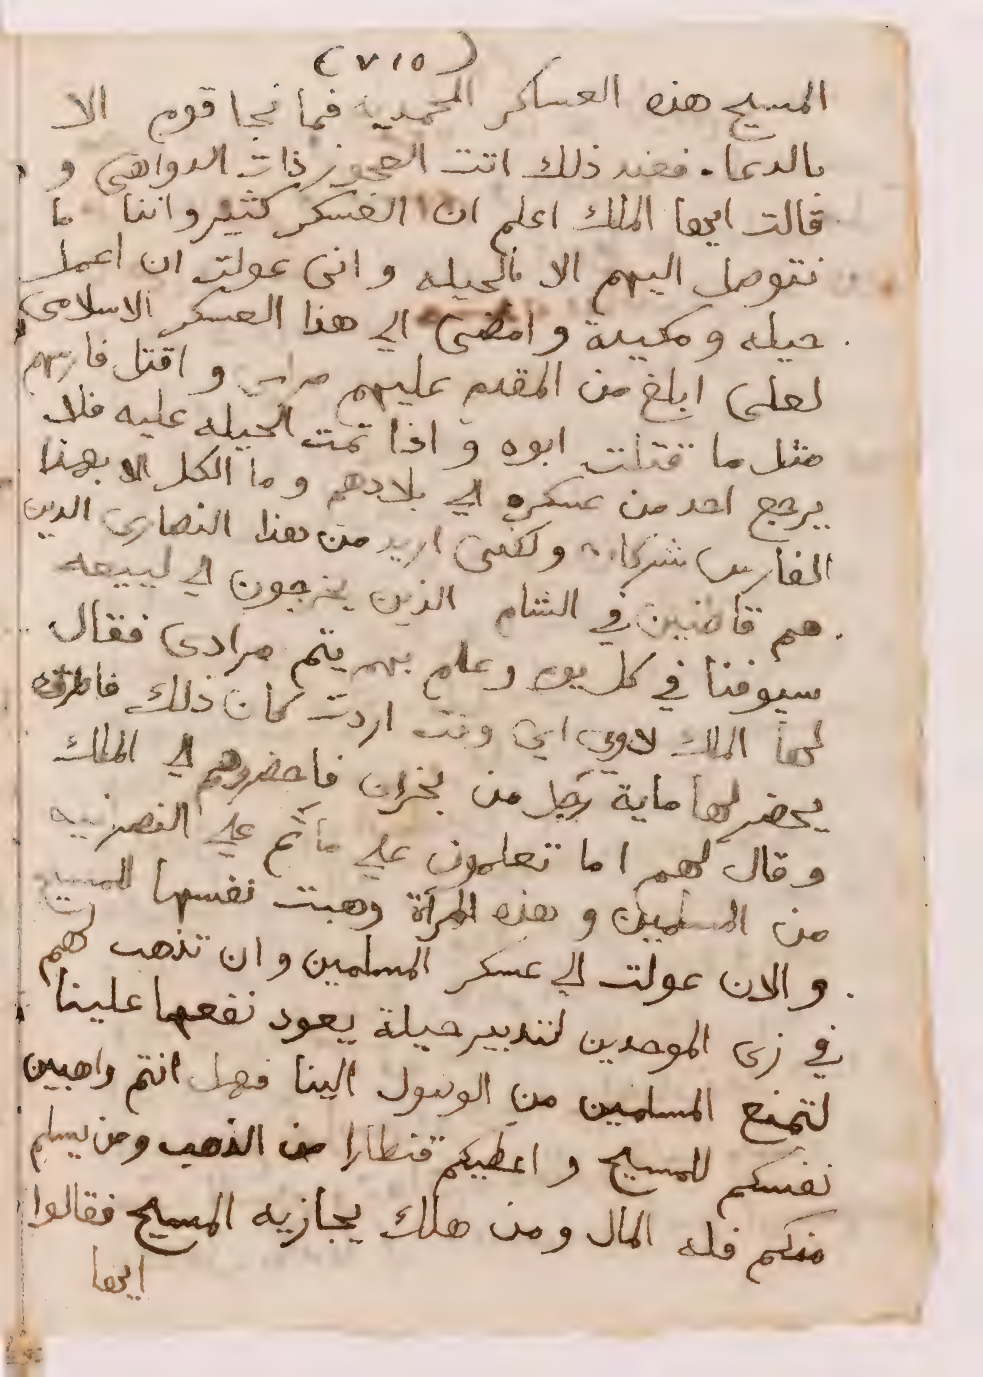 (٧١٥)
المسيح هذه العساكر المحمديه فما نجا قوم الا
بالدعا. فعند ذلك اتت العجوز ذات الدواهى و
قالت ايها الملك اعلم ان العسكر كثير واننا ما
نتوصل اليهم الا بالحيله و انى عولت ان اعمل
حيله و مكيدة و امضى الي هذا العسكر الاسلامى
لعلى ابلغ من المقدم عليهم مرامى و اقتل فارسهم
مثل ما قتلت ابوه و اذا تمت الحيله عليه فلا
يرجع احد من عسكره الي بلادهم و ما الكل الا بهذا
الفارس شركا و لكنى اريد من هذا النصارى الدين
هم قاطنين في الشام الذين يخرجون الي لبيعه
سيوفنا في كل يوم وعلم بهم يتم مرادى فقال
لها الملك لاوي اي وقت اردت كان ذلك فاطرق
يحضر لها ماية رجل من نجران فاحضروهم الي الملك
و قال لهم اما تعلمون علي ما تم علي النصرنيه
من المسلمين و هذه المرآة وهبت نفسها للمسيح
و الان عولت الي عسكر المسلمين و ان تذهب لهم
في زى الموحدين لتدبير حيلة يعود نفعها علينا
لتمنع المسلمين من الوسول الينا فهل انتم واهبين
نفسكم للمسيح و اعطيكم قنطارا من الذهب ومن يسلم
منكم فله المال ومن هلك يجازيه المسيح فقالوا
ايها